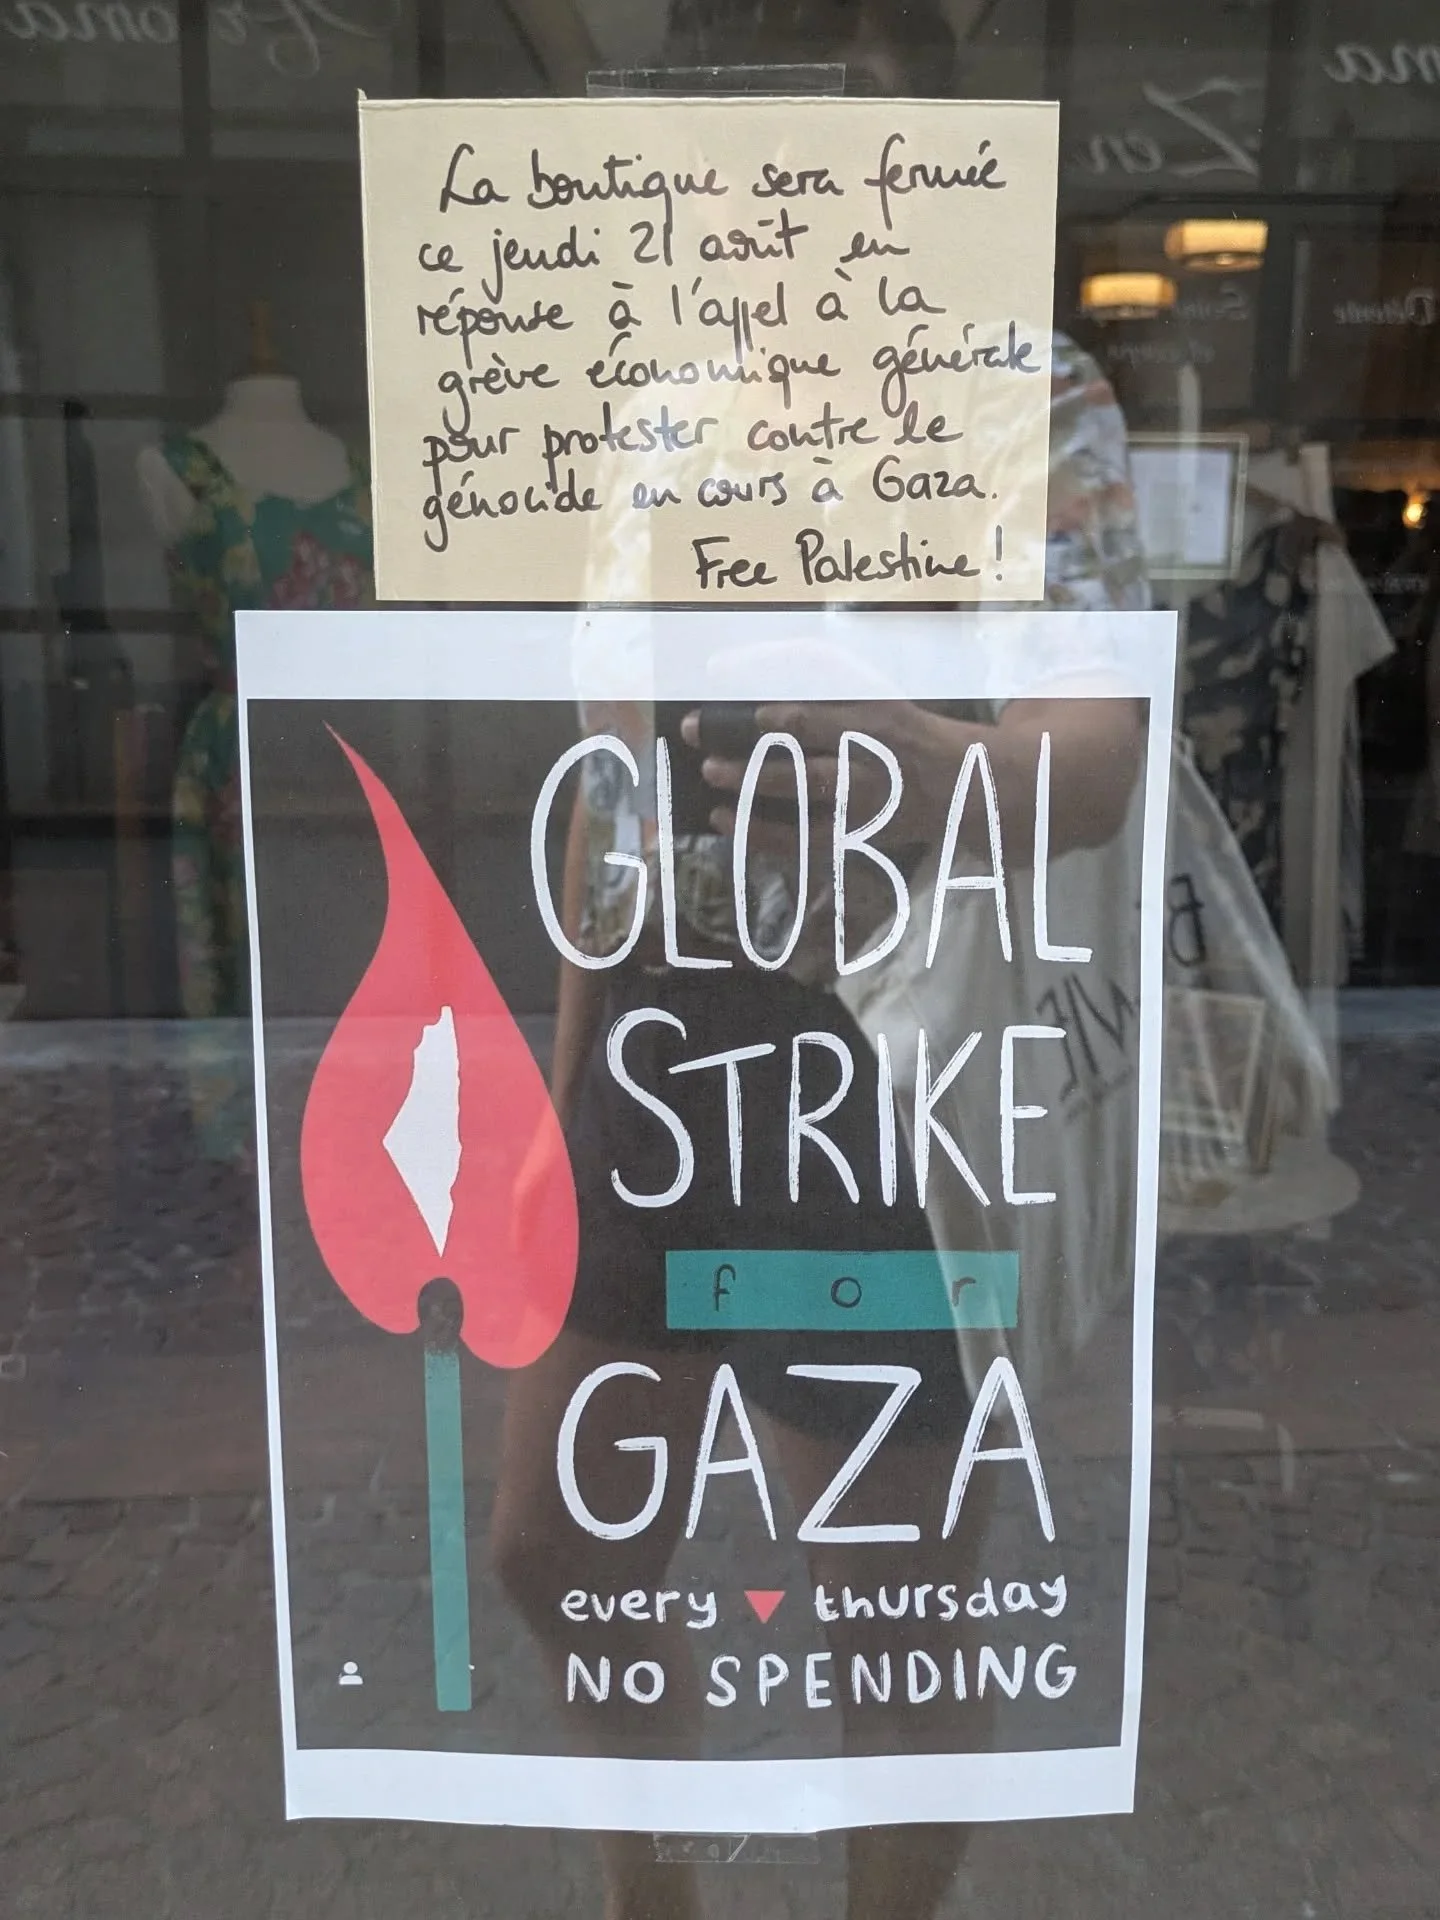 La boutique sera fermée
ce jeudi 21 août en
réponse à l'appel à la
grève économique générale
pour protester contre le
génocide en cours à Gaza.
Free Palestine !
GLOBAL
STRIKE
for
GAZA
every thursday
NO SPENDING
Zen
Détente